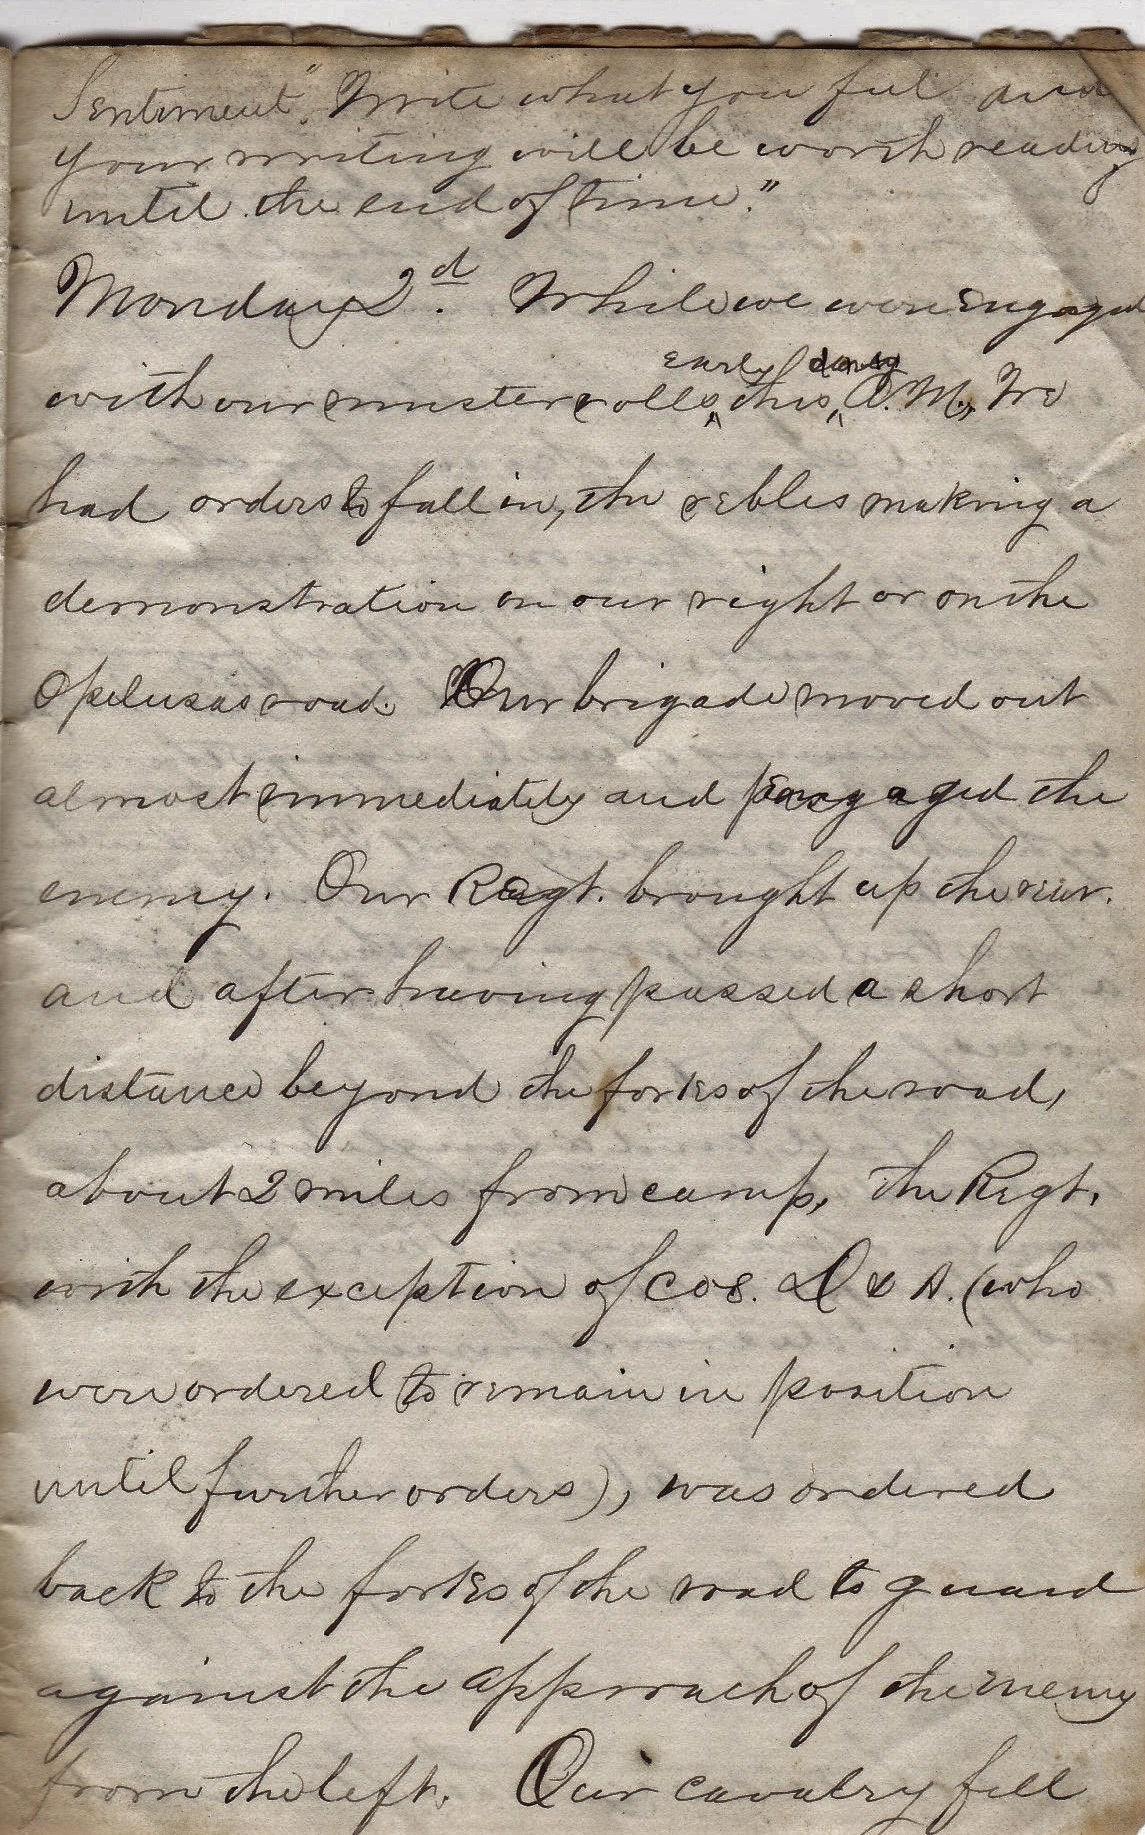 Sentiment". Write what you feel and
your writing will be worth reading
until the end of time."
Monday 2d. While we were engaged
early
with our muster rolls, this A.M., We
had orders to fall in, the rebles making a
demonstration on our right or on the
Opelusas road. Our brigade moved out
almost immediately and engaged the
enemy. Our Regt. brought up the rear.
and after having passed a short
distance beyond the forks of the road,
about 2 miles from camp, the Regt.
with the exception of cos. D & A. (who
were ordered to remain in position
until further orders), was ordered
back to the forks of the road to guard
against the approach of the enemy
from the left. Our cavalry fell